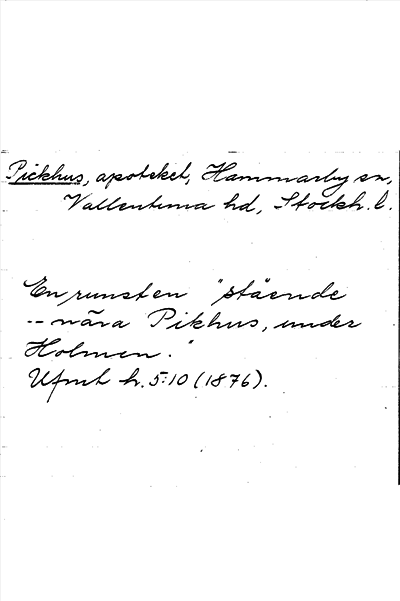 Pickhus, apoteket, Hammarby sn,
Vallentuna hd, Stockh. l.
En runsten "stående
-- nära Pikhus, under
Holmen."
Ufmt h. 5:10 (1876).